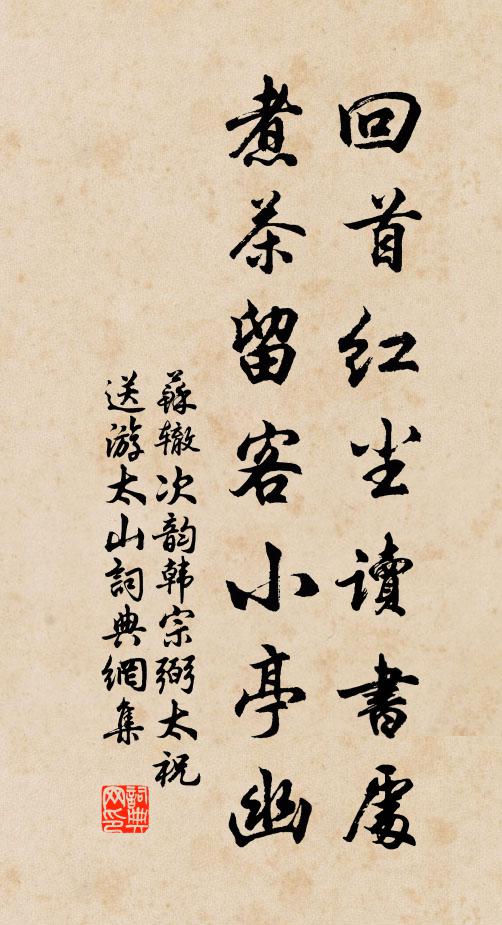 回首红尘读書處
煮茶留客小亭幽
蘇辙次韵韩宗弼太祝
送游太山詞典網集
詞典网印